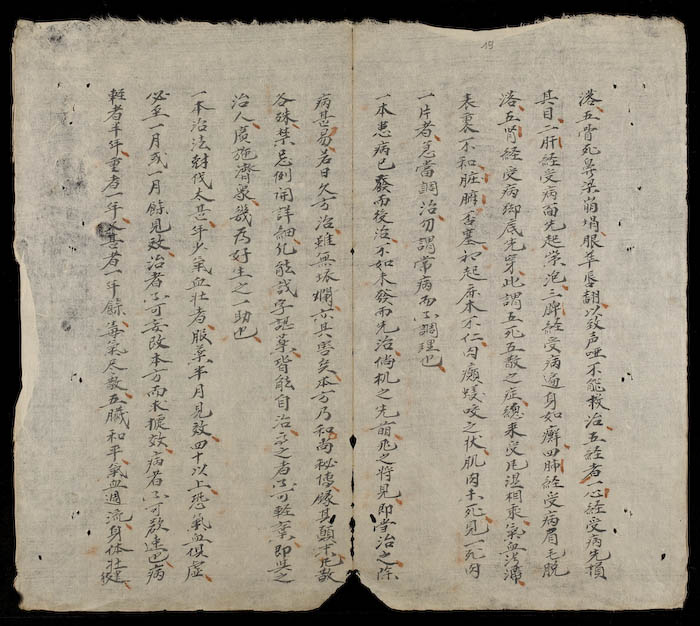 19
落五腎死鼻梁崩塌眼萃唇翻以致声哑不能救治五經者一心經受病先損
其目二肝經受病面先起紫泡三脾經受病遍身如癬四肺經受病眉毛脱
落五腎經受病脚底先穿此謂五死五敗之症總来受風湿相乘氣血凝滯
表裏不和脏腑否塞初起麻木不仁肉癢蟻咬之状肌肉未死見一死肉
一片者急當調治勿謂常病而不調理也
一本患病已發而後治不如未發而先治倘机之先萌兆之將見即當治之除
病甚易若日久方治雖無壞爛六其害矣本方乃和尚秘傳緣其顛末風敖
各殊禁忌例開詳細凢能識字認藥皆能自治示之者不可輕棄即與之
治人廣施濟衆幾為好生之一助也
一本治法封伐太甚年少氣血壮者服藥半月見效四十以上恐氣血俱虚
必至一月或一月餘見效治者不可妄改本方而求捷效病者不可欲速也病
輕者半年重者一年又甚者一年餘毒氣尽散五臟和平氣血週流身体壮